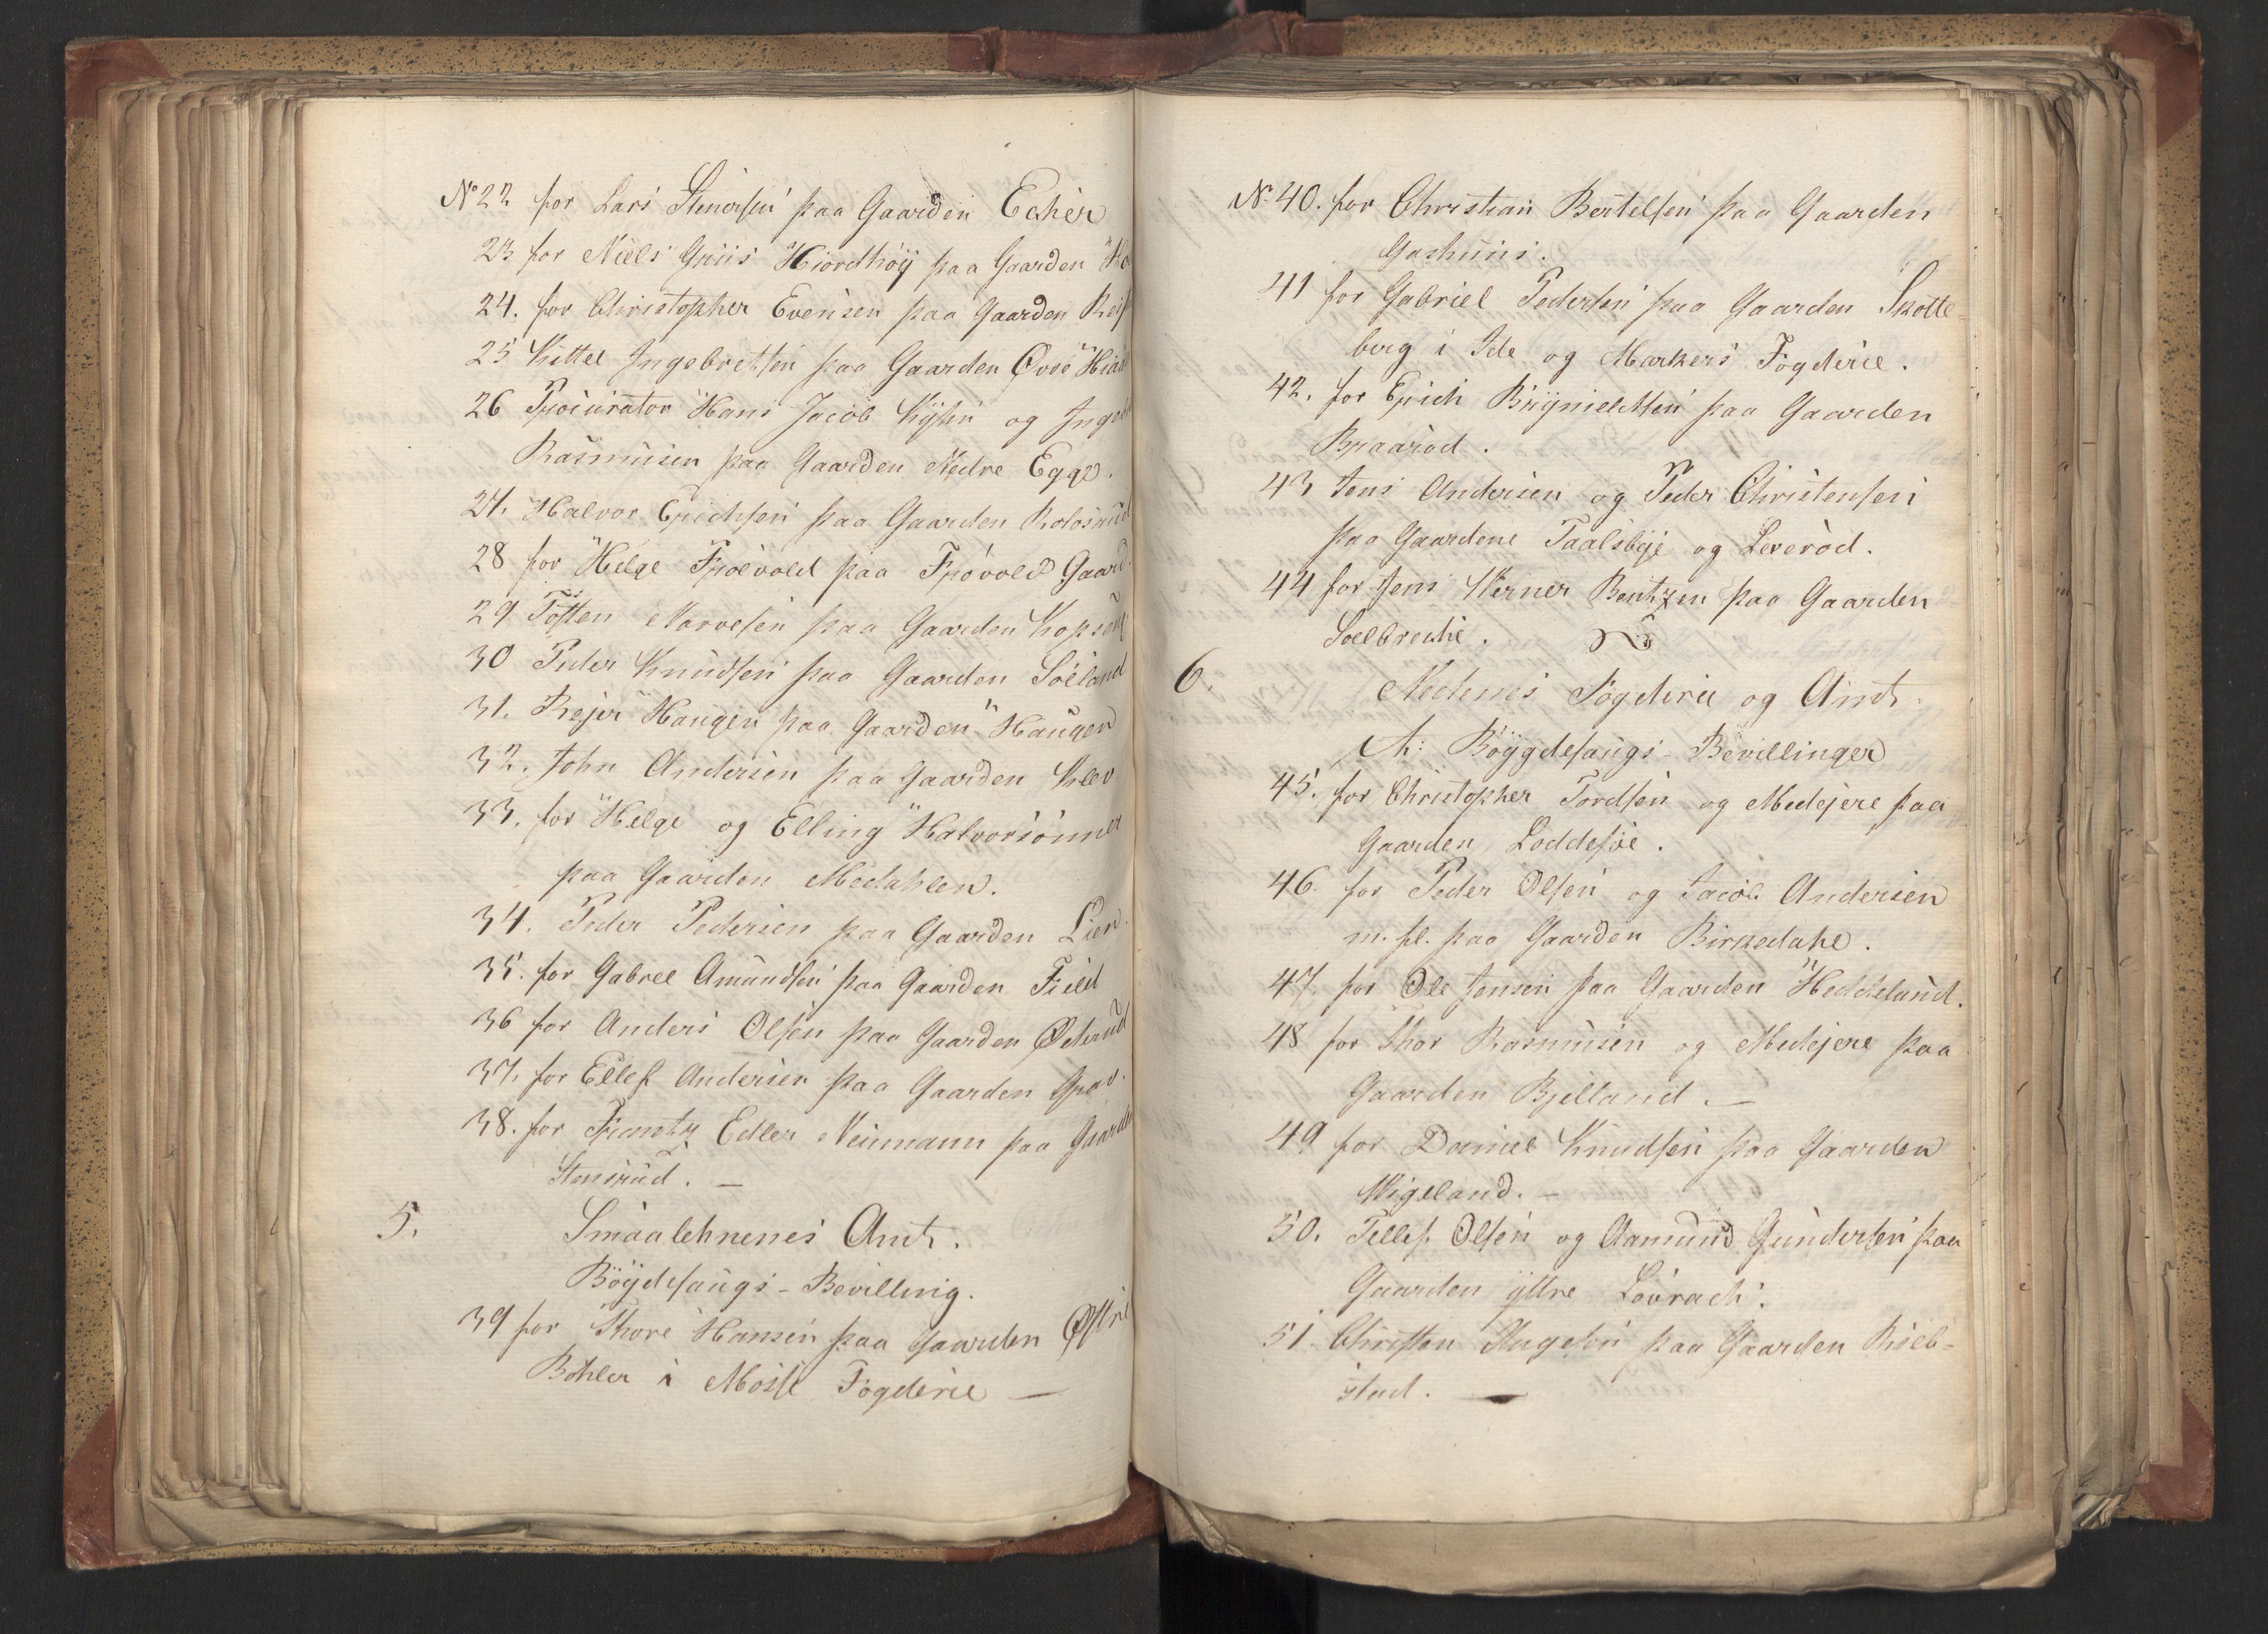 No 22 for Lars Stenersen paa Gaarden Ecker
23 for Niels Griis Hiordhöy paa Gaarden
24. for Christopher Evensen paa Gaarden
25 Kittel Ingebretsen paa Gaarden Øvre
26 Procurator Hans Jacob Kysen og
Rasmusen paa Gaarden Nedre Egge.
27. Halvor Erichsen paa Gaarden Kolosrud
28 for Helge Fröevold paa Frövold Gaard.
29 Tosten Narvesen paa Gaarden
30 Peder Knudsen paa Gaarden Söeland
31. Rejer Haugen paa Gaarden Haugen
32. John Andersen paa Gaarden Klev
33. for Helge og Elling Halvorsönner
paa Gaarden Medahlen.
34. Peder Pedersen paa Gaarden Lien.
35. for Gabrel Amundsen paa Gaarden Field
36 for Anders Olsen paa Gaarden
37. for Ellef Andersen paa Gaarden Grav.
38. for Frantz Edler Neumann paa Gaarden
Stensrud. —
5. Smaalehnenes Amt.
Böydesaugs-Bevilling.
39 for Thore Hansen paa Gaarden Østre
Bohler i Mosse Fogderie —
No 40. for Christian Bertelsen paa Gaarden
Gashuus.
41 for Gabriel Pedersen paa Gaarden Skotte-
berg i Ide og Markers Fogderie.
42. for Erich Brynieldsen paa Gaarden
Braaröd.
43 Jens Andersen og Peder Christensen
paa Gaardene Taalsbye og Leveröd.
44 for Jens Werner Bentzen paa Gaarden
Soelbrecke.
6. Nedenes Fogderie og Amt.
A: Böygdesaugs-Bevillinger
45. for Christopher Tordsen og Medejere paa
Gaarden Loddesöe.
46. for Peder Olsen og Jacob Andersen
m. fl. paa Gaarden Birkedahl.
47 for Ole Jensen paa Gaarden Heddeland.
48 for Thor Rasmusen og Medejere paa
Gaarden Bjelland. —
49 for Daniel Knudsen paa Gaarden
Wigeland. —
50. Tellef Olsen og Aamund Gundersen paa
Gaarden yttre Lövrach.
51 Christen Aagesen paa Gaarden Riseb-
stad. —